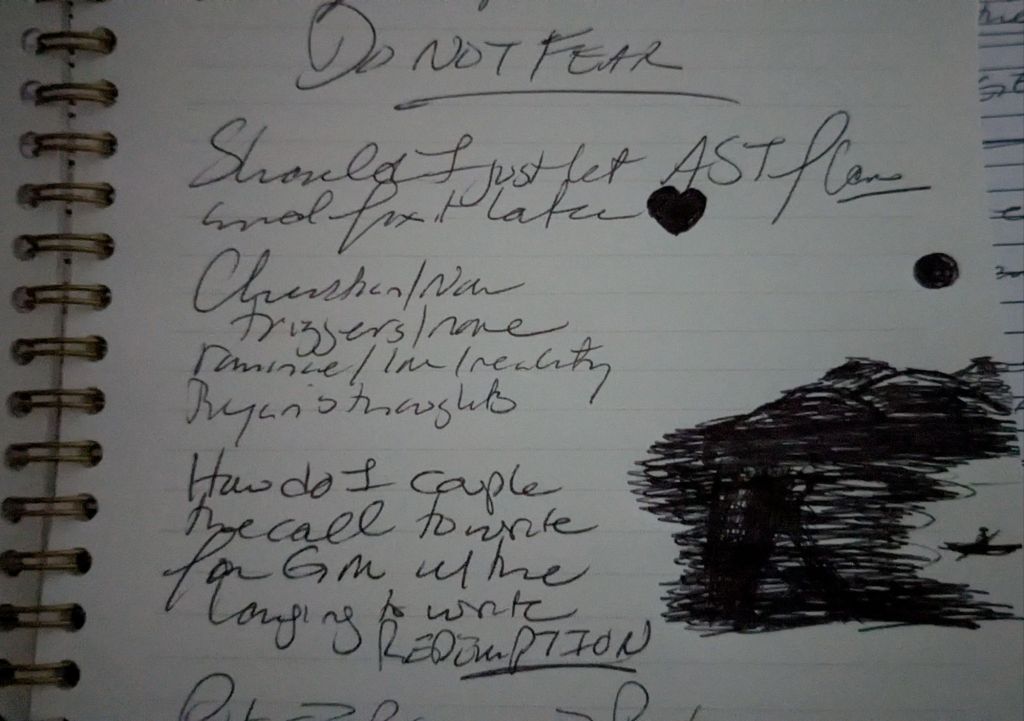 DO NOT FEAR
Should I just let AST flow
and fix it later
Christian/Non
triggers/none
/reality
Ryan's thoughts
How do I couple
the call to write
for GM w/ the
longing to write
REDEMPTION